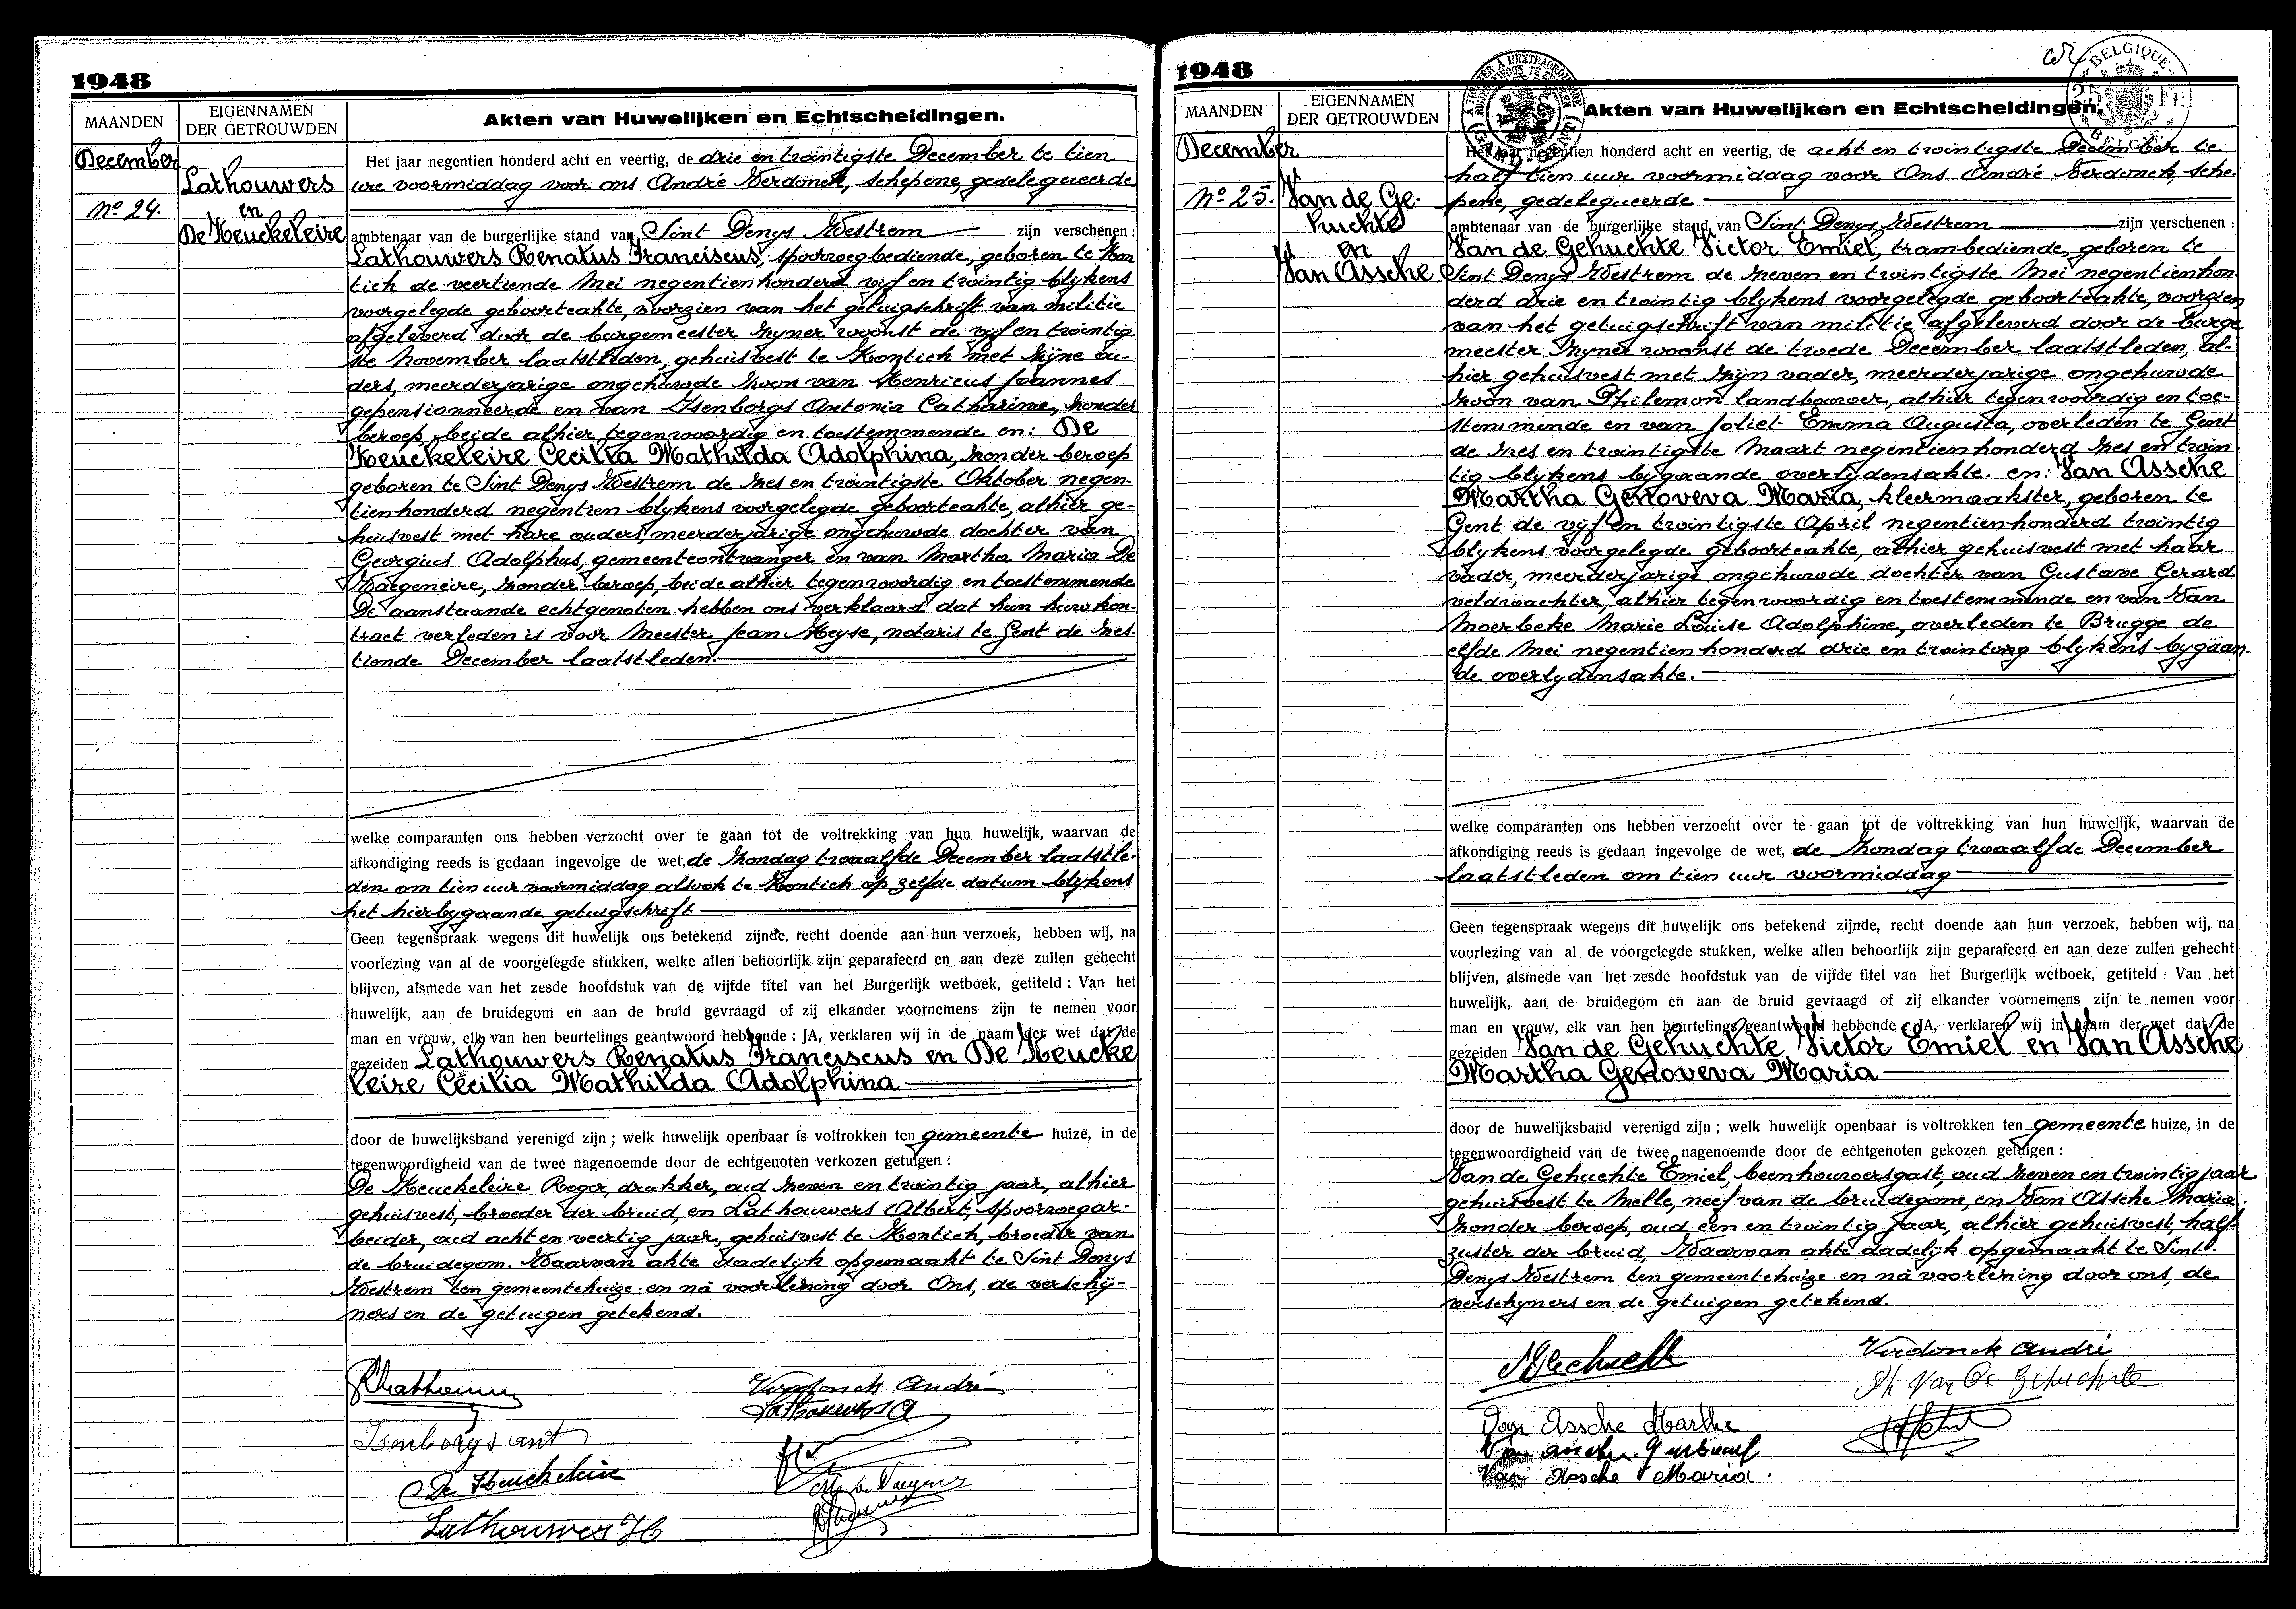 1948
MAANDEN
EIGENNAMEN
DER GETROUWDEN
Akten van Huwelijken en Echtscheidingen.
December
No 24.
Lathouwers
en
De Keuckeleire
Het jaar negentien honderd acht en veertig, de drie en twintigste December te tien
ure voormiddag voor ons André Verdonck, schepene, gedelegueerde
ambtenaar van de burgerlijke stand van Sint Denys Westrem zijn verschenen :
Lathouwers Renatus Franciscus, spoorwegbediende, geboren te Kon
tich de veertiende Mei negentienhonderd vijf en twintig blijkens
voorgelegde geboorteakte, voorzien van het getuigschrift van militie
afgeleverd door de burgemeester zyner woonst de vijf en twintig
ste November laatstleden, gehuisvest te Kontich met zijne ou-
ders, meerderjarige ongehuwde zoon van Henricus Joannes
gepensionneerde en van Isenborgs Antonia Catharina, zonder
beroep, beide alhier tegenwoordig en toestemmende en: De
Keuckeleire Cecilia Mathilda Adolphina, zonder beroep
geboren te Sint Denys Westrem de zes en twintigste Oktober negen-
tienhonderd negentien blykens voorgelegde geboorteakte, alhier ge-
huisvest met hare ouders, meerderjarige ongehuwde dochter van
Georgius Adolphus, gemeenteontvanger en van Martha Maria De
Waegeneire, zonder beroep, beide alhier tegenwoordig en toestemmende
De aanstaande echtgenoten hebben ons verklaard dat hun huwkon-
tract verleden is voor Meester Jean Heyse, notaris te Gent de zes-
tiende December laatstleden.
welke comparanten ons hebben verzocht over te gaan tot de voltrekking van hun huwelijk, waarvan de
afkondiging reeds is gedaan ingevolge de wet, de zondag twaalfde December laatstle-
den om tien uur voormiddag alsook te Kontich op zelfde datum blykens
het hierbygaande getuigschrift
Geen tegenspraak wegens dit huwelijk ons betekend zijnde, recht doende aan hun verzoek, hebben wij, na
voorlezing van al de voorgelegde stukken, welke allen behoorlijk zijn geparafeerd en aan deze zullen gehecht
blijven, alsmede van het zesde hoofdstuk van de vijfde titel van het Burgerlijk wetboek, getiteld : Van het
huwelijk, aan de bruidegom en aan de bruid gevraagd of zij elkander voornemens zijn te nemen voor
man en vrouw, elk van hen beurtelings geantwoord hebbende : JA, verklaren wij in de naam der wet dat de
gezeiden Lathouwers Renatus Franciscus en De Keucke
leire Cecilia Mathilda Adolphina
door de huwelijksband verenigd zijn ; welk huwelijk openbaar is voltrokken ten gemeente huize, in de
tegenwoordigheid van de twee nagenoemde door de echtgenoten verkozen getuigen :
De Keuckeleire Roger, drukker, oud zeven en twintig jaar, alhier
gehuisvest, broeder der bruid, en Lathouwers Albert, spoorwegar-
beider, oud acht en veertig jaar, gehuisvest te Kontich, broeder van
de bruidegom. Waarvan akte dadelijk opgemaakt te Sint Denys
Westrem ten gemeentehuize en nà voorlezing door Ons, de verschij-
ners en de getuigen getekend.
Verdonck André
Lathouwers A
Isenborgs ant
De Keuckeleire
Lathouwer H
1948
MAANDEN
EIGENNAMEN
DER GETROUWDEN
Akten van Huwelijken en Echtscheidingen.
BELGIQUE
25 Fr.
BELGIË
December
No 25.
Van de Ge-
huchte
en
Van Assche
Het jaar negentien honderd acht en veertig, de acht en twintigste December te
half tien uur voormiddag voor Ons André Verdonck, sche-
pene, gedelegueerde
ambtenaar van de burgerlijke stand van Sint Denys Westrem zijn verschenen :
Van de Gehuchte Victor Emiel, trambediende, geboren te
Sint Denys Westrem de zeven en twintigste Mei negentienhon
derd drie en twintig blykens voorgelegde geboorteakte, voorzien
van het getuigschrift van militie afgeleverd door de burge
meester zyner woonst de twede December laatstleden, al-
hier gehuisvest met zijn vader, meerderjarige ongehuwde
zoon van Philemon landbouwer, alhier tegenwoordig en toe-
stemmende en van Joliet Emma Augusta, overleden te Gent
de zes en twintigste Maart negentienhonderd zes en twin
tig blykens bygaande overlydensakte. en: Van Assche
Martha Genoveva Maria, kleermaakster, geboren te
Gent de vijf en twintigste April negentienhonderd twintig
blykens voorgelegde geboorteakte, alhier gehuisvest met haar
vader, meerderjarige ongehuwde dochter van Gustave Gerard
veldwachter, alhier tegenwoordig en toestemmende en van Van
Moerbeke Marie Louise Adolphine, overleden te Brugge de
elfde Mei negentienhonderd drie en twintig blykens bygaan-
de overlydensakte.
welke comparanten ons hebben verzocht over te gaan tot de voltrekking van hun huwelijk, waarvan de
afkondiging reeds is gedaan ingevolge de wet, de zondag twaalfde December
laatstleden om tien uur voormiddag
Geen tegenspraak wegens dit huwelijk ons betekend zijnde, recht doende aan hun verzoek, hebben wij, na
voorlezing van al de voorgelegde stukken, welke allen behoorlijk zijn geparafeerd en aan deze zullen gehecht
blijven, alsmede van het zesde hoofdstuk van de vijfde titel van het Burgerlijk wetboek, getiteld : Van het
huwelijk, aan de bruidegom en aan de bruid gevraagd of zij elkander voornemens zijn te nemen voor
man en vrouw, elk van hen beurtelings geantwoord hebbende : JA, verklaren wij in naam der wet dat de
gezeiden Van de Gehuchte Victor Emiel en Van Assche
Martha Genoveva Maria
door de huwelijksband verenigd zijn ; welk huwelijk openbaar is voltrokken ten gemeente huize, in de
tegenwoordigheid van de twee nagenoemde door de echtgenoten gekozen getuigen :
Van de Gehuchte Emiel, beenhouwersgast, oud zeven en twintig jaar
gehuisvest te Melle, neef van de bruidegom, en Van Assche Maria
zonder beroep, oud een en twintig jaar, alhier gehuisvest, half
zuster der bruid, Waarvan akte dadelijk opgemaakt te Sint
Denys Westrem ten gemeentehuize en nà voorlezing door ons, de
verschyners en de getuigen getekend.
Verdonck André
Ph Van De Gehuchte
Van Assche Marthe
Van Assche Maria.